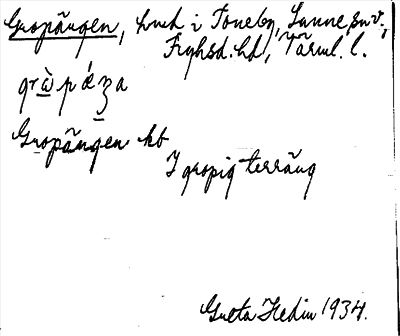 Gropängen, hmd i Toneby, Sunne sn v.,
Fryksd. hd, Värml. l.
grὰpǽŋa
Gropängen kb
I gropig terräng
Greta Hedin 1934.